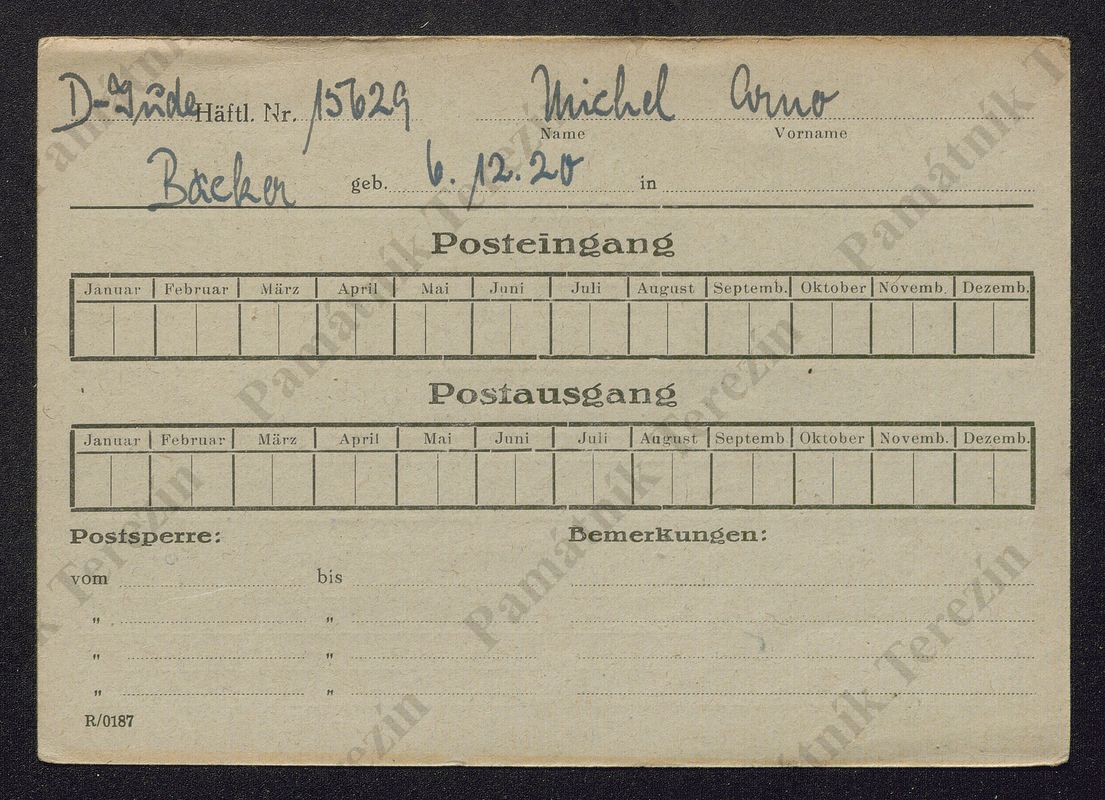 D-Jude Häftl. Nr. 15629 Michel Arno
Name Vorname
Bäcker geb. 6. 12. 20 in
Posteingang
Januar Februar März April Mai Juni Juli August Septemb. Oktober Novemb. Dezemb.
Postausgang
Januar Februar März April Mai Juni Juli August Septemb Oktober Novemb. Dezemb.
Postsperre: Bemerkungen:
vom bis
" "
" "
" "
R/0187
Památník Terezín